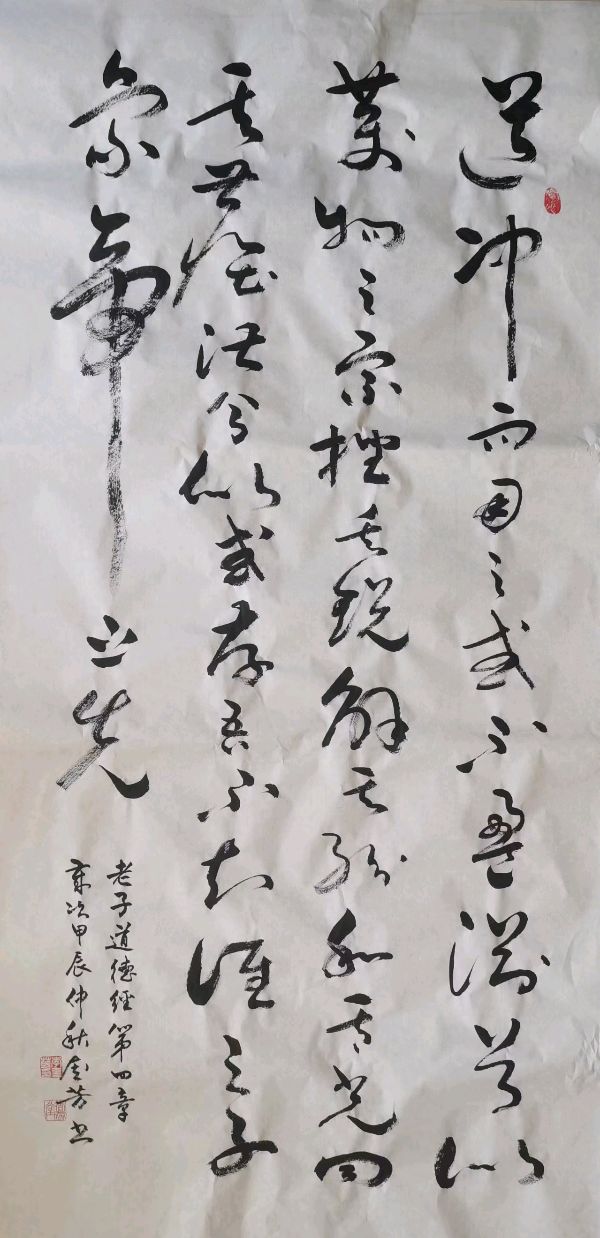 道冲而用之或不盈渊兮似
万物之宗挫其锐解其纷和其光同
其尘湛兮似或存吾不知谁之子
象帝之先
老子道德经第四章
岁次甲辰仲秋 芳书